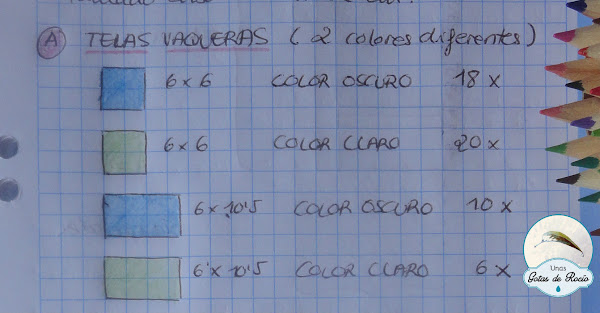 A TELAS VAQUERAS ( 2 colores diferentes )
6 x 6 COLOR OSCURO 18 x
6 x 6 COLOR CLARO 20 x
6 x 10'5 COLOR OSCURO 10 x
6 x 10'5 COLOR CLARO 6 x
Unas
Gotas de Rocío